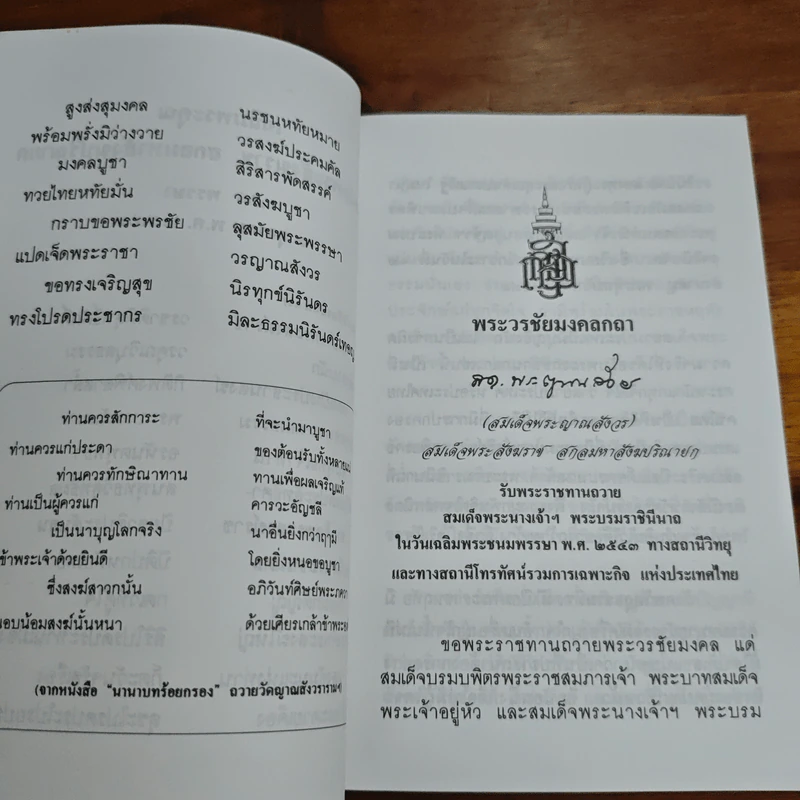 สูงส่งสุมงคล นรชนหทัยหมาย
พร้อมพรั่งมิว่างวาย วรสงฆ์ประคมคัล
มงคลบูชา สิริสารพัดสรรค์
ทวยไทยหทัยมั่น วรสังฆบูชา
กราบขอพระพรชัย ลุสมัยพระพรรษา
แปดเจ็ดพระราชา วรญาณสังวร
ขอทรงเจริญสุข นิรทุกข์นิรันดร
ทรงโปรดประชากร มิละธรรมนิรันดร์เทอญ
ท่านควรสักการะ ที่จะนำมาบูชา
ท่านควรแก่ประดา ของต้อนรับทั้งหลายแม้
ท่านควรทักษิณาทาน ทานเพื่อผลเจริญแท้
ท่านเป็นผู้ควรแก่ คารวะอัญชลี
เป็นนาบุญโลกจริง นาอื่นยิ่งกว่าฤๅมี
ข้าพระเจ้าด้วยยินดี โดยยิ่งหนอขอบูชา
ซึ่งสงฆ์สาวกนั้น อภิวันท์ศิษย์พระภควา
นอบน้อมสงฆ์นั้นหนา ด้วยเศียรเกล้าข้าพระ
(จากหนังสือ "นานาบทร้อยกรอง" ถวายวัดญาณสังวราราม)
พระวรชัยมงคลกถา
(สมเด็จพระญาณสังวร)
สมเด็จพระสังฆราช สกลมหาสังฆปริณายก
รับพระราชทานถวาย
สมเด็จพระนางเจ้าฯ พระบรมราชินีนาถ
ในวันเฉลิมพระชนมพรรษา พ.ศ. ๒๕๔๓ ทางสถานีวิทยุ
และทางสถานีโทรทัศน์รวมการเฉพาะกิจ แห่งประเทศไทย
ขอพระราชทานถวายพระวรชัยมงคล แด่
สมเด็จบรมบพิตรพระราชสมภารเจ้า พระบาทสมเด็จ
พระเจ้าอยู่หัว และสมเด็จพระนางเจ้าฯ พระบรม